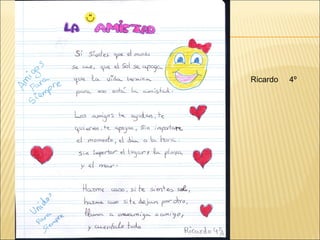 LA AMISTAD
Amigos
Para
Siempre
Si sientes que el mundo
se cae, que el Sol se apaga,
que la vida termina
para eso está la amistad.
Los amigos te ayudan, te
quieren, te apoyan, sin importar
el momento, el día o la hora.
sin importar el lugar: la playa
y el mar.
Unidos
Para
Siempre
Hazme caso, si te sientes solo,
hazme caso si te dejan por otro,
llama a amigo,
y cuéntalo todo
Ricardo 4º
Ricardo 4º